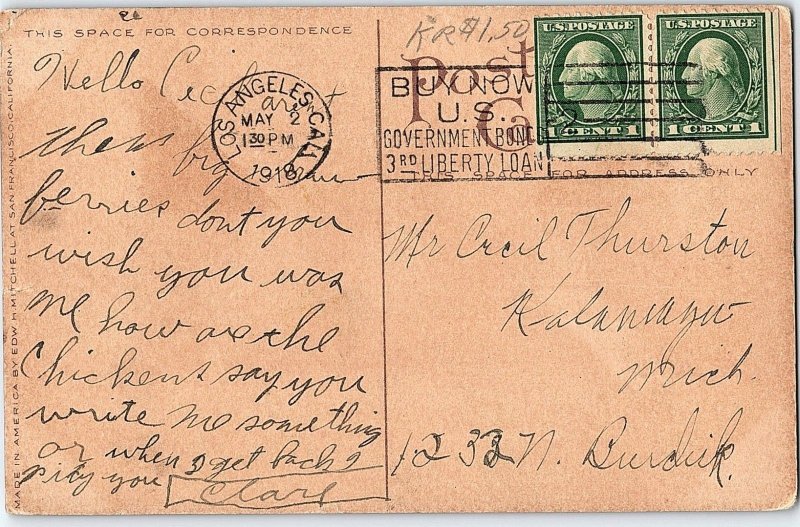 THIS SPACE FOR CORRESPONDENCE
KR $1.50
Post
Ca
U.S. POSTAGE
1 CENT 1
U.S. POSTAGE
1 CENT 1
LOS ANGELES, CAL.
MAY 2
1 30 PM
1918
BUY NOW
U.S.
GOVERNMENT BONDS
3RD LIBERTY LOAN
THIS SPACE FOR ADDRESS ONLY
MADE IN AMERICA BY EDW. H. MITCHELL AT SAN FRANCISCO, CALIFORNIA.
Hello Cecil
are
these big
berries dont you
wish you was
me how are the
Chickens say you
write me something
or when I get back I
pity you Clare
Mr Cecil Thurston
Kalamazoo
Mich.
1232 N. Burdick